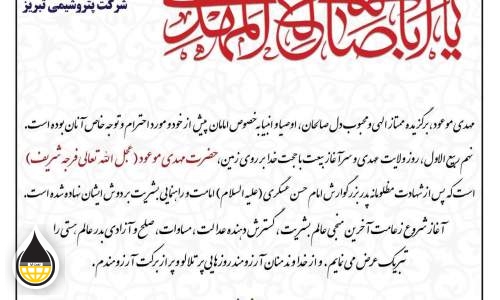 شرکت پتروشیمی تبریز
یا اباصالح المهدی
مهدی موعود، برگزیده ممتاز الهی و محبوب دل صالحان، اوصیا و انبیا به خصوص امامان پیش از خود و مورد احترام و توجه خاص آنان بوده است.
نهم ربیع الاول، روز ولایت عهدی و سرآغاز بیعت با حجت خدا بر روی زمین، حضرت مهدی موعود (عجل الله تعالی فرجه شریف)
است که پس از شهادت مظلومانه پدر بزرگوارش امام حسن عسکری (علیه السلام) امامت و راهنمایی بشریت بر دوش ایشان نهاده شده است.
آغاز شروع زعامت آخرین منجی عالم بشریت، گسترش دهنده عدالت، مساوات، صلح و آزادی بر عالم هستی را
تبریک عرض می نمایم. و از خداوند منان آرزومند روزهایی پر تلالو و پر از برکت آرزومندم.